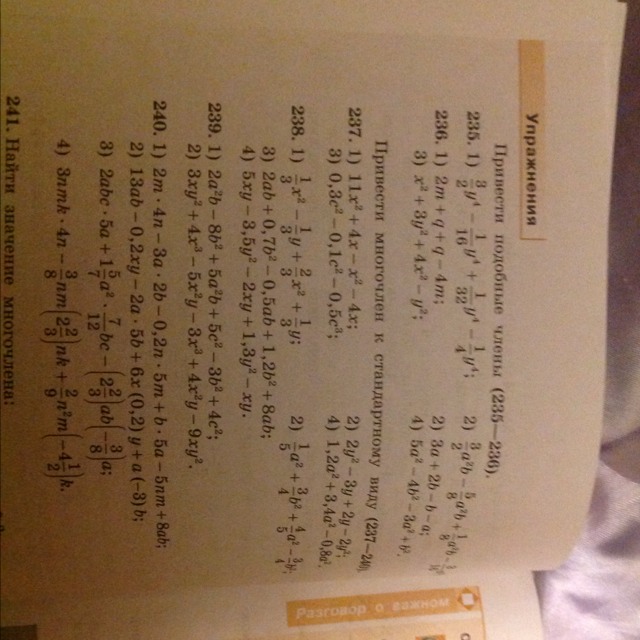 Упражнения
Привести подобные члены (235—236).
235. 1) 3/2 y⁴ − 1/16 y⁴ + 1/32 y⁴ − 1/4 y⁴; 2) 3/2 a²b − 5/8 a²b + 1/8 a²b
236. 1) 2m + q + q − 4m; 2) 3a + 2b − b − a;
3) x² + 3y² + 4x² − y²; 4) 5a² − 4b² − 3a² + b².
Привести многочлен к стандартному виду (237—240).
237. 1) 11x² + 4x − x² − 4x; 2) 2y² − 3y + 2y − 3y²;
3) 0,3c² − 0,1c² − 0,5c³; 4) 1,2a² + 3,4a² − 0,8a².
238. 1) 1/3 x² − 1/3 y + 2/3 x² + 1/3 y; 2) 1/5 a² + 3/4 b² + 4/5 a² − 3/4 b²;
3) 2ab + 0,7b² − 0,5ab + 1,2b² + 8ab;
4) 5xy − 3,5y² − 2xy + 1,3y² − xy.
239. 1) 2a²b − 8b² + 5a²b + 5c² − 3b² + 4c²;
2) 3xy² + 4x³ − 5x²y − 3x³ + 4x²y − 9xy².
240. 1) 2m · 4n − 3a · 2b − 0,2n · 5m + b · 5a − 5nm + 8ab;
2) 13ab − 0,2xy − 2a · 5b + 6x (0,2) y + a (−3) b;
3) 2abc · 5a + 1 5/7 a² · 7/12 bc − (2 2/3) ab (−3/8) a;
4) 3nmk · 4n − 3/8 nm (2 2/3) nk + 2/9 n²m (−4 1/2) k.
241. Найти значение многочлена:
Разговор о важном